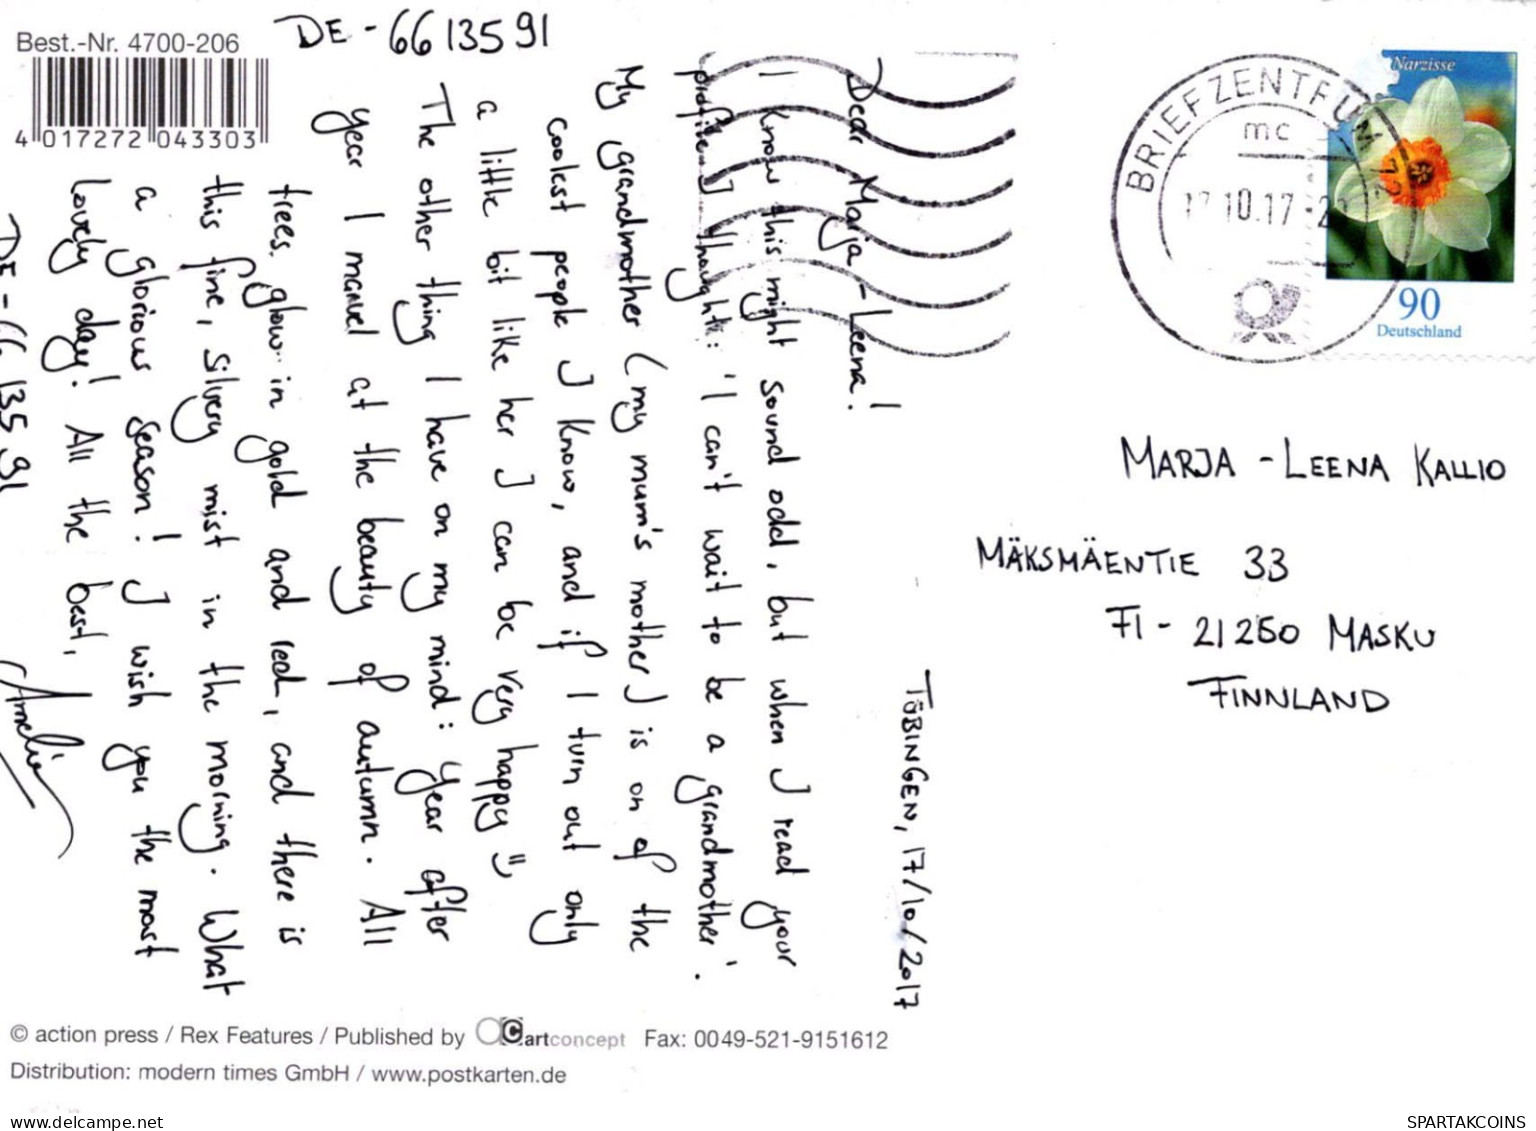 Best.-Nr. 4700-206
4 017272 043303
DE - 66 135 91
TÜBINGEN, 17/10/2017
Dear Marja-Leena!
I know this might sound odd, but when I read your
profile I thought: 'I can't wait to be a grandmother'.
My grandmother (my mum's mother) is on of the
coolest people I know, and if I turn out only
a little bit like her I can be very happy =)
The other thing I have on my mind: year after
year I marvel at the beauty of autumn. All
trees glow in gold and red, and there is
this fine, silvery mist in the morning. What
a glorious season! I wish you the most
Lovely day! All the best,
Amelie
DE - 66 135 91
BRIEFZENTRUM 72
mc
17.10.17-2
Narzisse
90
Deutschland
MARJA-LEENA KALLIO
MÄKSMÄENTIE 33
FI- 21250 MASKU
FINNLAND
© action press / Rex Features / Published by ac artconcept Fax: 0049-521-9151612
Distribution: modern times GmbH / www.postkarten.de
www.delcampe.net
SPARTAKCOINS